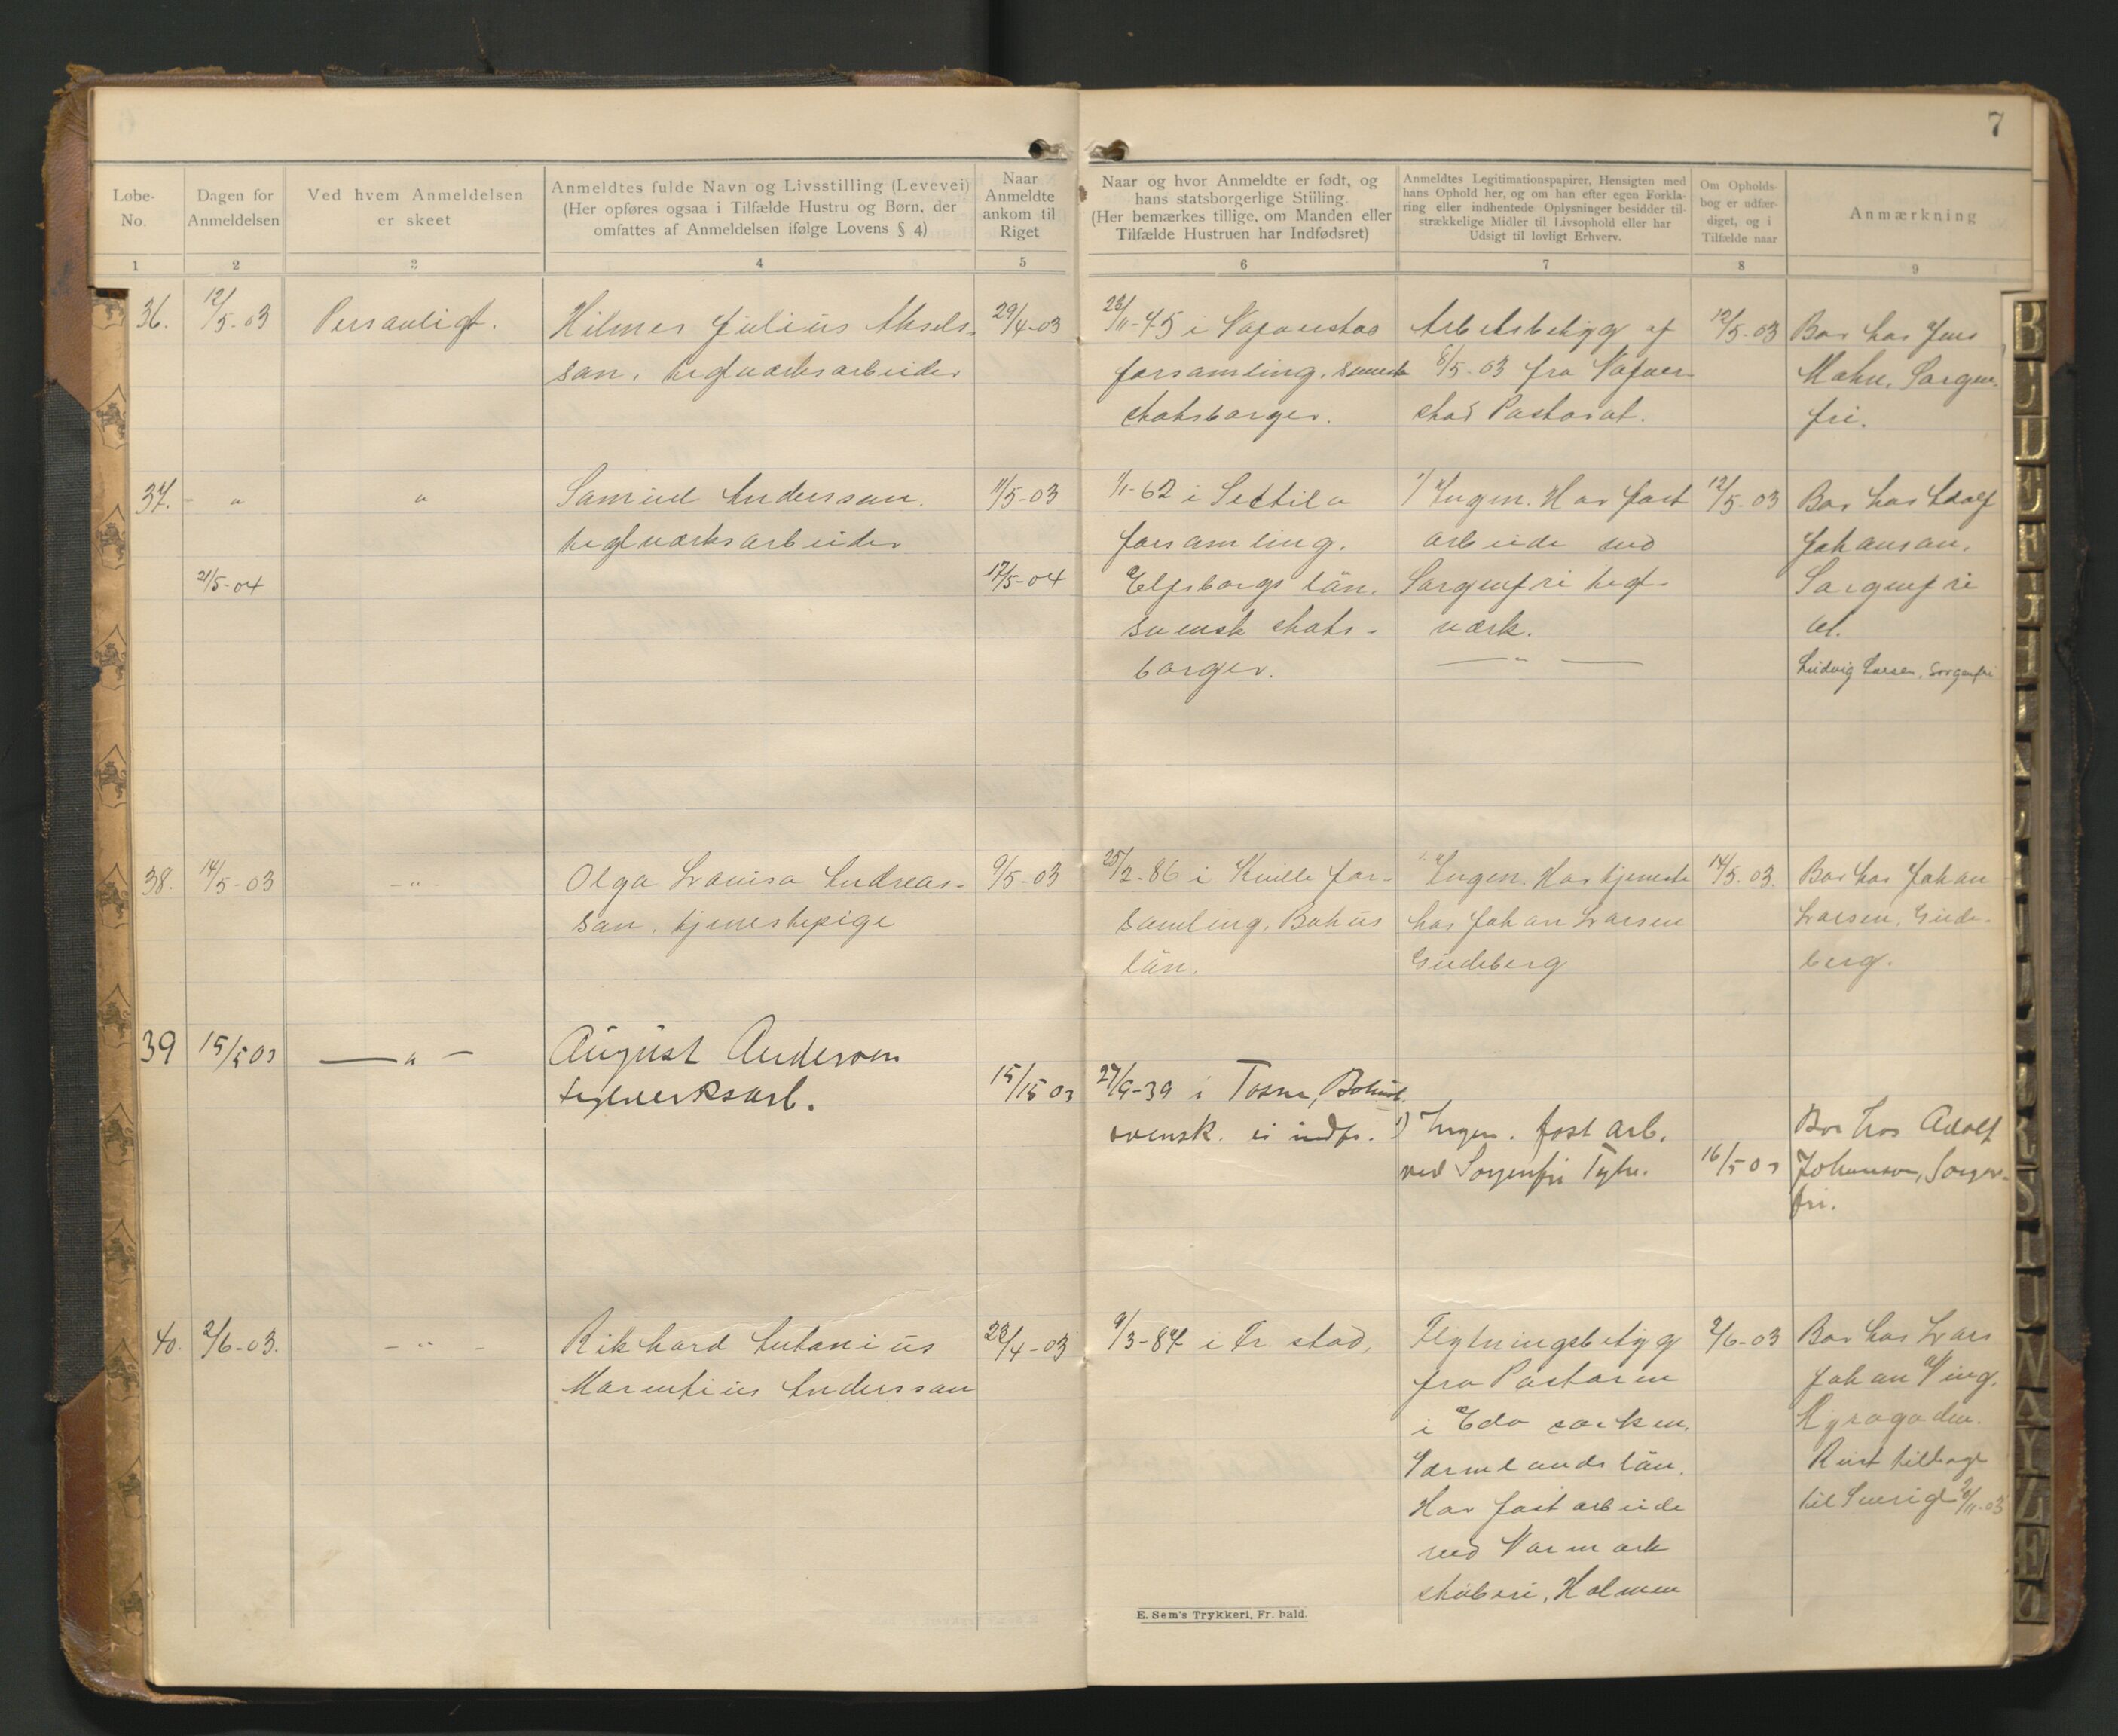 7
Løbe-
No.
Dagen for
Anmeldelsen
Ved hvem Anmeldelsen
er skeet
Anmeldtes fulde Navn og Livsstilling (Levevei)
(Her opføres ogsaa i Tilfælde Hustru og Børn, der
omfattes af Anmeldelsen ifølge Lovens § 4)
Naar
Anmeldte
ankom til
Riget
Naar og hvor Anmeldte er født, og
hans statsborgerlige Stiilling.
(Her bemærkes tillige, om Manden eller
Tilfælde Hustruen har Indfødsret)
Anmeldtes Legitimationspapirer, Hensigten med
hans Ophold her, og om han efter egen Forkla-
ring eller indhentede Oplysninger besidder til-
strækkelige Midler til Livsophold eller har
Udsigt til lovligt Erhverv.
Om Opholds-
bog er udfær-
diget, og i
Tilfælde naar
Anmærkning
1 2 3 4 5 6 7 8 9
36.
12/5-03
Personligt.
Hilmer Julius Aksels-
son, teglværksarbeider
29/4-03
23/11-45 i
forsamling, svensk
statsborger.
Arbetsbetyg af
8/5-03 fra
stad Pastorat.
12/5-03
Bor hos Jens
Sorgen-
fri.
37. - " "
Samuel Andersson.
teglværksarbeider
11/5-03
1/1-62 i Settila
forsamling.
Elfsborgs län.
svensk stats-
borger.
1) Ingen. Har fast
arbeide ved
Sorgenfri tegl-
værk.
— " —
12/5-03
Bor hos Adolf
Johanson.
Sorgenfri
Ludvig Larsen, Sorgenfri
21/5-04
17/5-04
38.
14/5-03
- " -
Olga Lovisa Andreas-
son. tjenestepige
9/5-03
25/2-86 i Kville for-
samling, Bohus
län.
Ingen. Har tjeneste
hos Johan Larsen
Gudeberg
14/5-03.
Bor hos Johan
Larsen, Gude-
berg.
39
15/5 03
— " —
August Andersen
teglverksarb.
15/15 03
27/9-39 i
svensk. ei indfr.
1) Ingen. fast arb.
ved Sorgenfri
16/5 03
Bor hos Adolf
Johanson, Sorgen-
fri.
40.
2/6-03.
- " -
Rikhard Antonius
Marentius Andersson
23/4-03
9/3-84 i Fr. stad,
Flytningsbetyg
fra Pastoren
i Eda socken.
Värmlands län.
Har fast arbeide
ved
støberi, Holmen
2/6-03
Bor hos Lars
Johan
Reist tilbage
til Sverige
E. Sem's Trykkeri, Fr. hald.